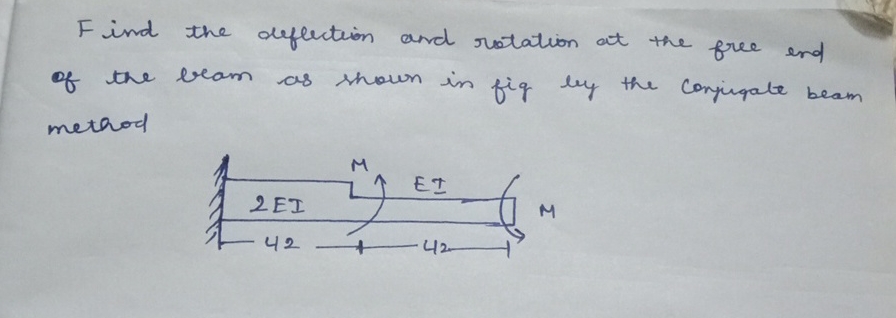 Find the deflection and rotation at the free end
of the beam as shown in fig by the Conjugate beam
method
M
EI
2EI
M
L/2
L/2